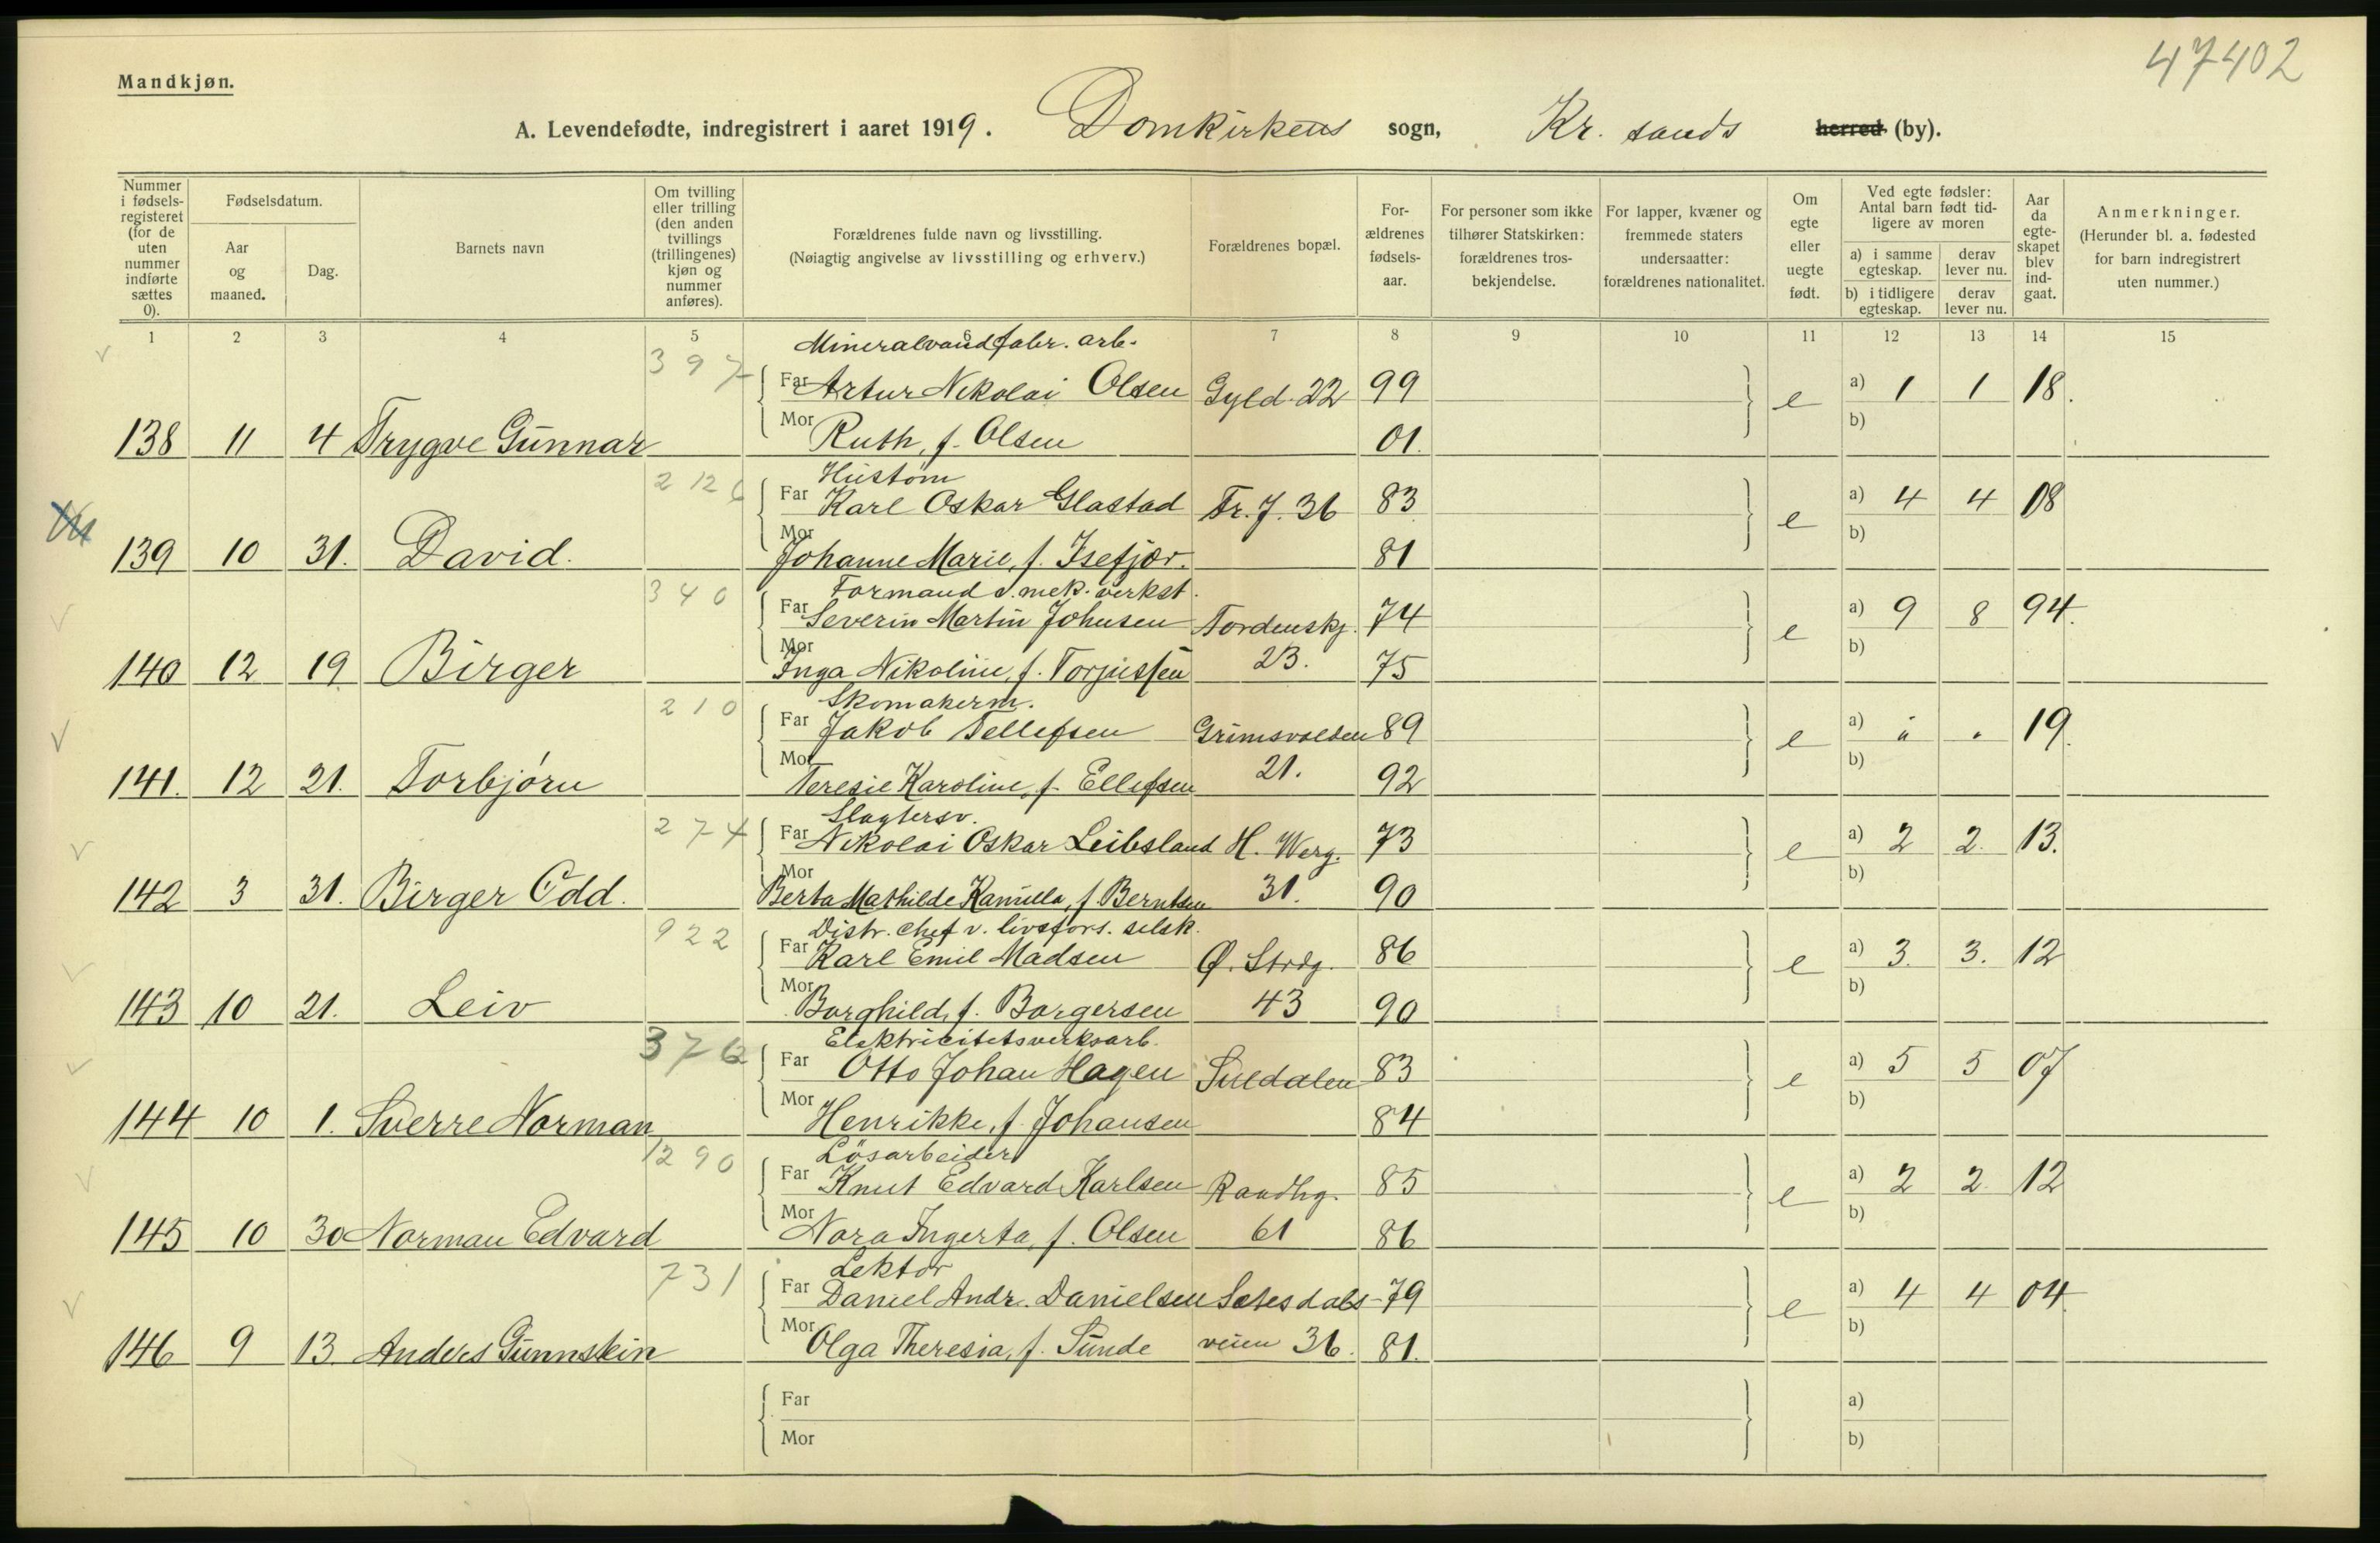 47402
Mandkjøn.
A. Levendefødte, indregistrert i aaret 1919. Domkirkens sogn, Kr. sands herred (by).
Nummer i fødselsregisteret (for de uten nummer indførte sættes 0).
Fødselsdatum.
Aar og maaned.
Dag.
Barnets navn
Om tvilling eller trilling (den anden tvillings (trillingenes) kjøn og nummer anføres).
Forældrenes fulde navn og livsstilling.
(Nøiagtig angivelse av livsstilling og erhverv.)
Forældrenes bopæl.
Forældrenes fødselsaar.
For personer som ikke tilhører Statskirken: forældrenes trosbekjendelse.
For lapper, kvæner og fremmede staters undersaatter: forældrenes nationalitet.
Om egte eller uegte født.
Ved egte fødsler: Antal barn født tidligere av moren
a) i samme egteskap. derav lever nu.
b) i tidligere egteskap. derav lever nu.
Aar da egteskapet blev indgaat.
Anmerkninger.
(Herunder bl. a. fødested for barn indregistrert uten nummer.)
1 2 3 4 5 6 7 8 9 10 11 12 13 14 15
397 Mineralvandfabr. arb.
Far Artur Nikolai Olsen Gyld. 22 99 e a) 1 1 18.
138 11 4 Trygve Gunnar Mor Ruth, f. Olsen 01. b)
212 Hustøm
Far Karl Oskar Glastad Fr. J. 36 83 e a) 4 4 08
139 10 31. David. Mor Johanne Marie, f. Isefjær. 81 b)
340 Formand v. mek. verkst.
Far Severin Martin Johnsen Tordenskj. 74 e a) 9 8 94.
140 12 19 Birger Mor Inga Nikoline, f. Torjussen 23. 75 b)
210 Skomakerm.
Far Jakob Tellefsen Grimsvolden 89 e a) " " 19.
141. 12 21. Torbjørn Mor Teresie Karoline, f. Ellefsen 21. 92 b)
274 Slagtersv.
Far Nikolai Oskar Leibsland H. Werg. 73 e a) 2 2. 13.
142 3 31. Birger Odd. Mor Berta Mathilde Kamilla, f. Berntsen 31. 90 b)
922 Distr. chef v. livsfors. selsk.
Far Karl Emil Madsen Ø. Strdg. 86 e a) 3. 3. 12
143 10 21. Leiv Mor Borghild, f. Borgersen 43 90 b)
376 Elektricitetsverksarb.
Far Otto Johan Hagen Suedalen 83 e a) 5 5 07
144 10 1. Sverre Norman Mor Henrikke, f. Johansen 84 b)
1290 Løsarbeider
Far Knut Edvard Karlsen Randhg. 85 e a) 2 2 12
145 10 30 Norman Edvard Mor Nora Ingerta, f. Olsen 61 86 b)
731 Lektor
Far Daniel Andr. Danielsen Setesdals- 79 e a) 4 4 04
146 9 13. Anders Gunnstein Mor Olga Theresia, f. Sunde veien 36. 81. b)
Far a)
Mor b)